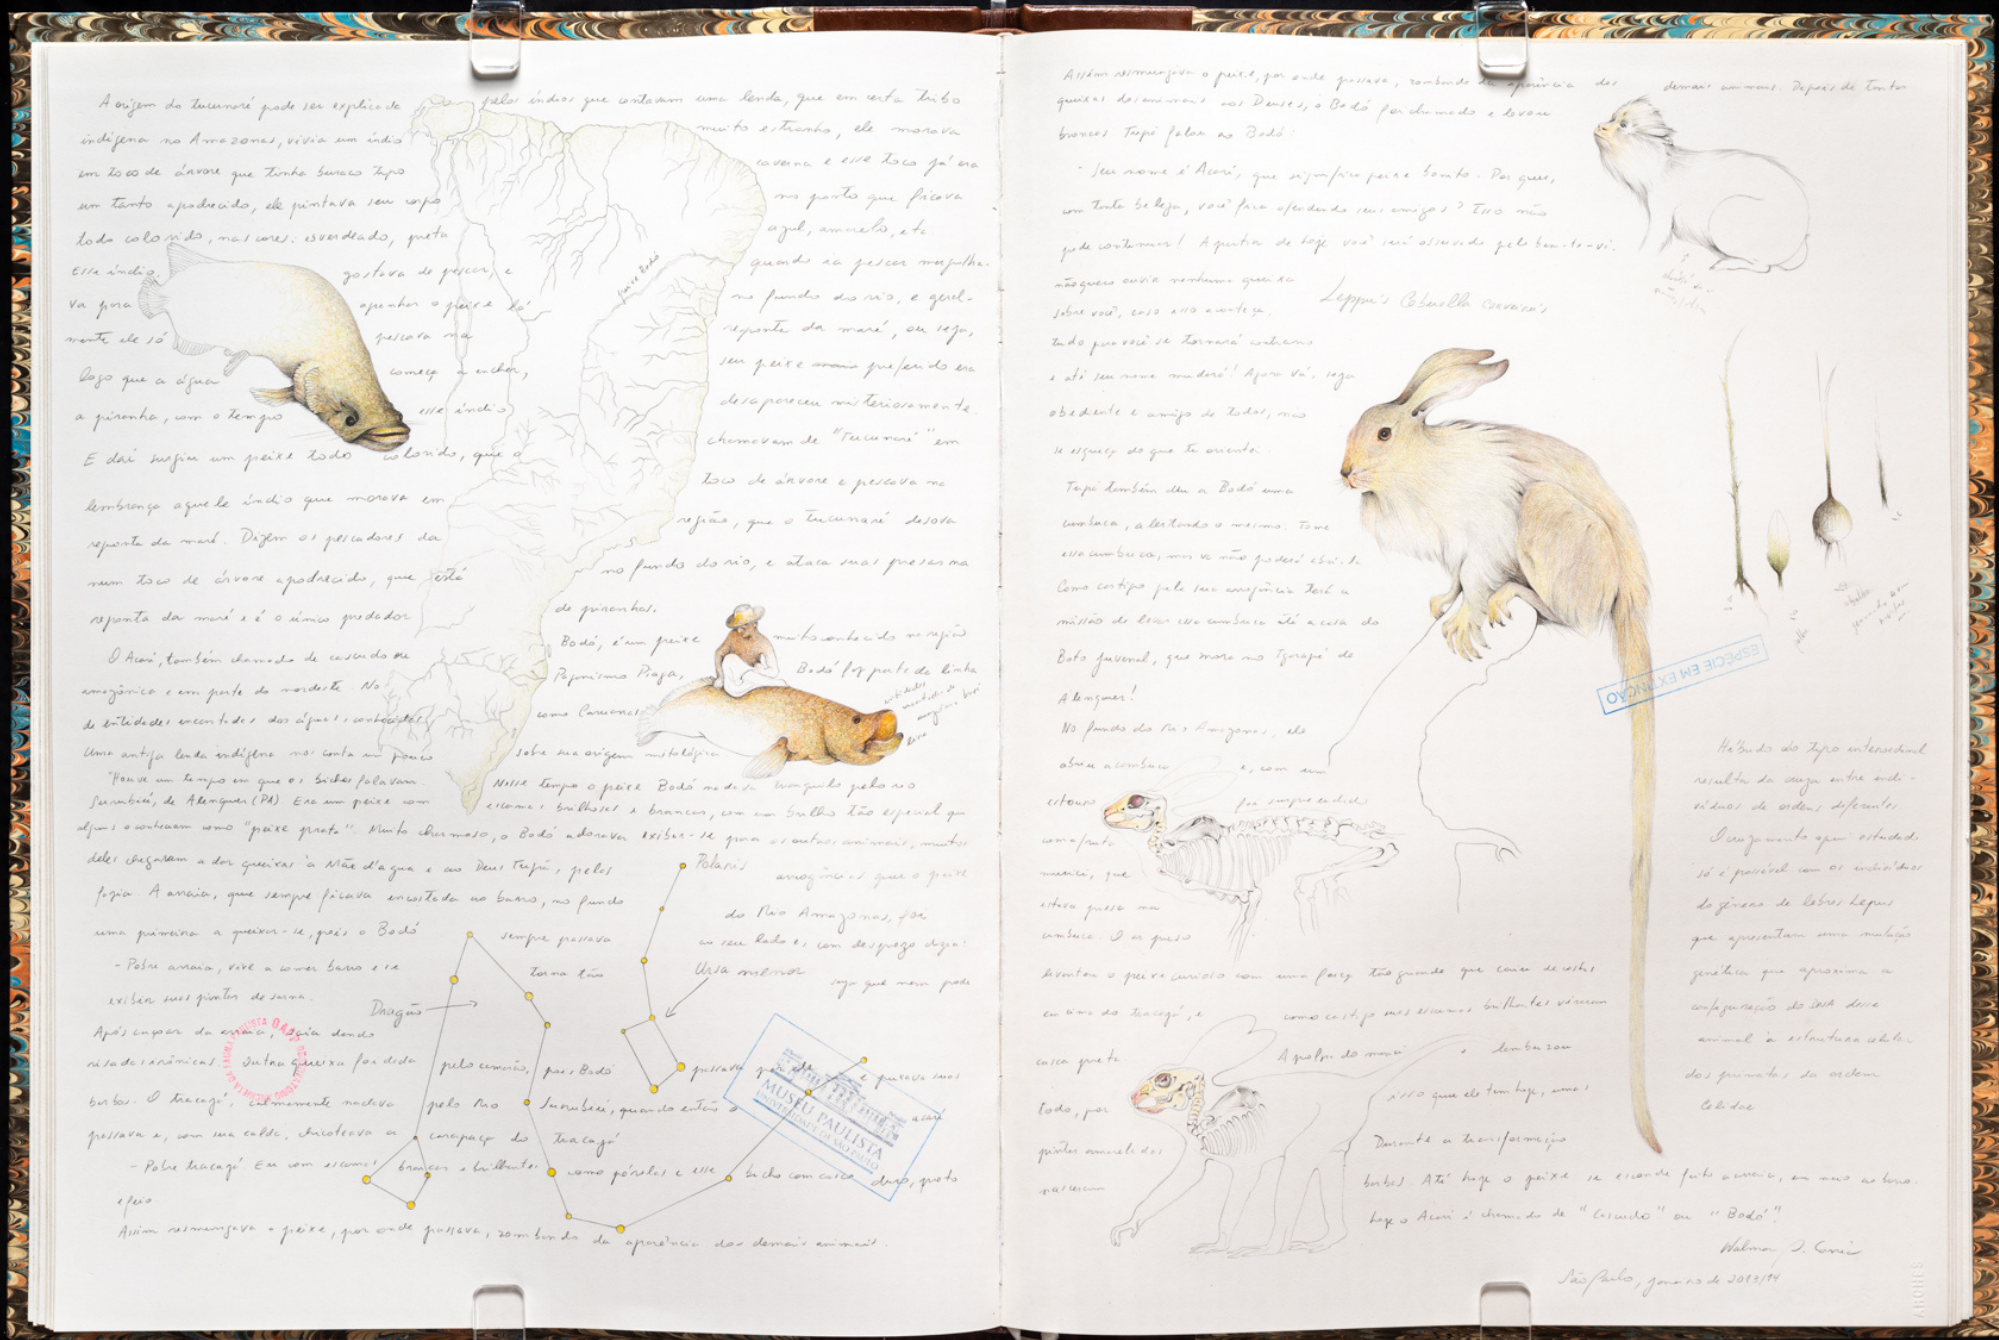 A origem do tucunaré pode ser explicada pelos índios que contavam uma lenda, que em certa tribo
indígena no Amazonas, vivia um índio muito estranho, ele morava
em toco de árvore que tinha buraco tipo caverna e esse toco já era
um tanto apodrecido, ele pintava seu corpo no ponto que ficava
todo colorido, nas cores: esverdeado, preta azul, amarelo, etc
Esse índio gostava de pescar, e quando ia pescar mergulha-
va para apanhar o peixe lá no fundo do rio, e geral-
mente ele só pescava na reponta da maré, ou seja,
logo que a água começa a encher, seu peixe mais preferido era
a piranha, com o tempo esse índio desapareceu misteriosamente.
E daí surgiu um peixe todo colorido, que o chamavam de "Tucunaré" em
lembrança aquele índio que morava em toco de árvore e pescava na
reponta da maré. Dizem os pescadores da região, que o tucunaré desova
num toco de árvore apodrecido, que está no fundo do rio, e ataca suas presas na
reponta da maré e é o único predador de piranhas.
peixe Bodó
O Acari, também chamado de cascudo ou Bodó, é um peixe muito conhecido na região
amazônica e em parte do nordeste. No Paganismo Piaga, Bodó faz parte da linha
de entidades encantadas das águas, conhecidas como Caruanas
Uma antiga lenda indígena nos conta um pouco sobre sua origem mitológica
"Houve um tempo em que os bichos falavam. Nesse tempo o peixe Bodó nadava tranquilo pelo rio
Surubiú, de Alenquer (PA) Era um peixe com escamas brilhosas e brancas, com um brilho tão especial que
alguns o conheciam como "peixe prata". Muito charmoso, o Bodó adorava exibir-se para os outros animais, muitos
deles chegaram a dar queixas à Mãe d'agua e ao Deus Tupã, pelas arrogâncias que o peixe
Polaris
fazia. A arraia, que sempre ficava encostada ao barro, no fundo do Rio Amazonas, foi
uma primeira a queixar-se, pois o Bodó sempre passava ao seu lado e, com desprezo dizia:
- Pobre arraia, vive a comer barro e se torna tão suja que nem pode
exibir suas pintas de sarna.
Ursa menor
Dragão
Após caçoar da arraia, saía dando
risadas irônicas. Outra queixa foi dada pelo camarão, pois Bodó passava por ele e puxava suas
barbas. O tracajá, calmamente nadava pelo Rio Surubiú, quando então o acari
passava e, com sua calda, chicoteava a carapaça do tracajá
- Pobre tracajá! Eu com escamas brancas e brilhantes como pérolas e esse bicho com casco duro, preto
e feio
Assim resmungava o peixe, por onde passava, zombando da aparência dos demais animais.
MUSEU PAULISTA
UNIVERSIDADE DE SÃO PAULO
Assim resmungava o peixe, por onde passava, zombando da aparência dos demais animais. Depois de tantas
queixas dos animais aos Deuses, o Bodó foi chamado e levou
broncas Tupã falou ao Bodó:
- Seu nome é Acari, que significa peixe bonito. Por que,
com tanta beleza, você fica ofendendo seus amigos? Isso não
pode continuar! A partir de hoje você será observado pelo bem-te-vi.
não quero ouvir nenhuma queixa
sobre você, caso isso aconteça,
tudo para você se tornará contrario
e até seu nome mudará! Agora vá, seja
obediente e amigo de todos, não
se esqueça do que te orientei.
Tupã também deu a Bodó uma
cumbuca, alertando o mesmo: Tome
essa cumbuca, mas vc não poderá abri-la
Como castigo pela sua arrogância terá a
missão de levar essa cumbuca até a casa do
Boto Juvenal, que mora no Igarapé de
Alenquer!
No fundo do Rio Amazonas, ele
abriu a cumbuca e, com um
estouro foi surpreendido
uma fruta
muruci, que
estava presa na
cumbuca. O ar preso
levantou o peixe curioso com uma força tão grande que caiu de costas
em cima do tracajá, e como castigo suas escamas brilhantes viraram
casca preta. A polpa do muruci o lambuzou
todo, por isso que ele tem hoje, umas
pintas amareladas Durante a transformação
nasceram barbas. Até hoje o peixe se esconde feito a arraia, em meio ao barro.
hoje o Acari é chamado de "Cascudo" ou "Bodó".
ESPÉCIE EM EXTINÇÃO
Híbrido do tipo interordinal
resulta da cruza entre indi-
víduos de ordens diferentes
O cruzamento aqui estudado
só é possível com os indivíduos
do gênero de lebres Lepus
que apresentam uma mutação
genética que aproxima a
configuração do DNA desse
animal à estrutura celular
dos primatas da ordem
Walmor
São Paulo, janeiro de 2013/14
ARCHES